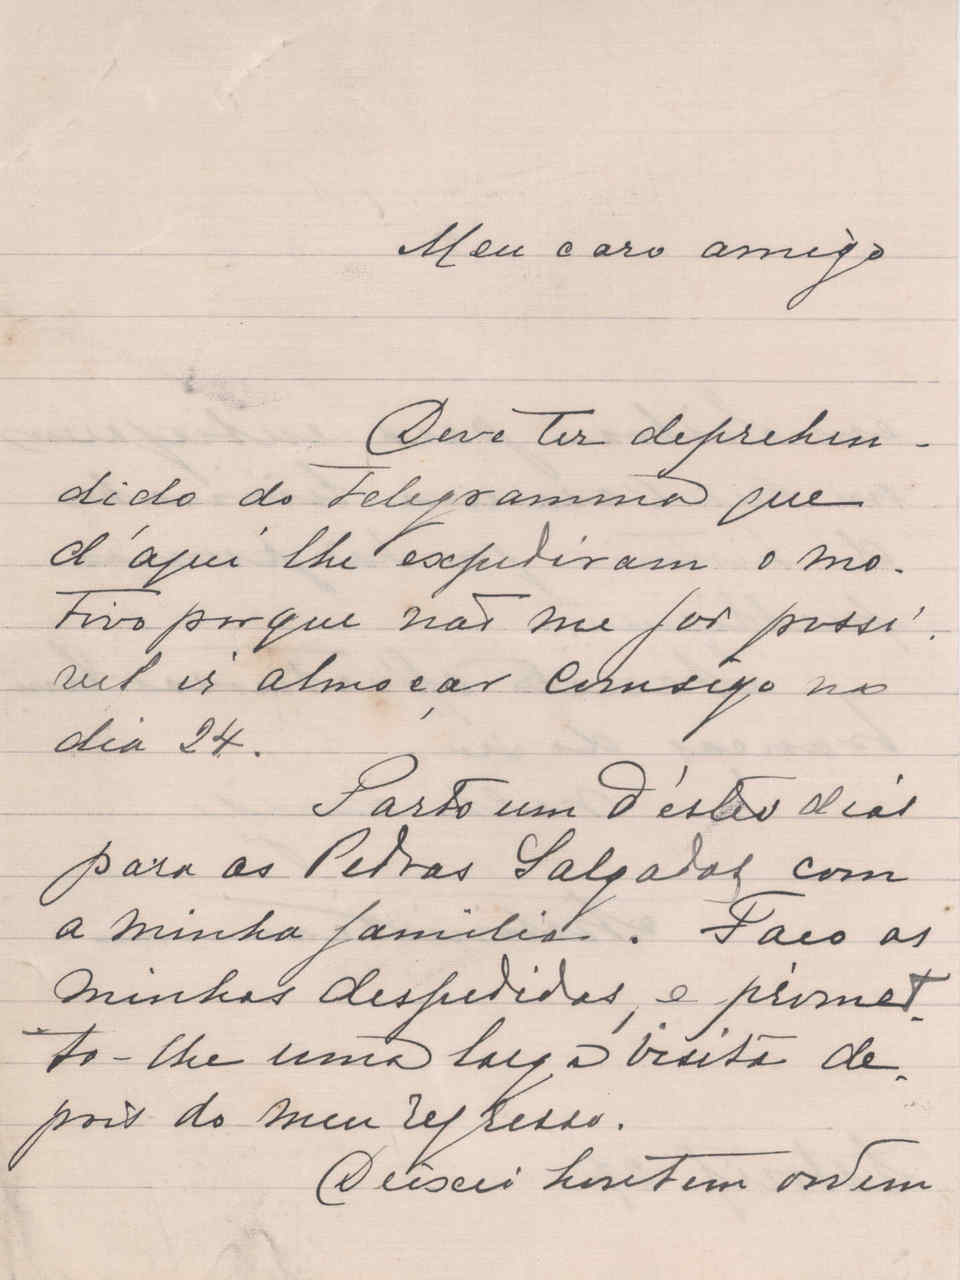 Meu caro amigo
Deve ter deprehen-
dido do telegramma que
d'aqui lhe expediram o mo-
tivo porque não me foi possi-
vel ir almoçar comsigo no
dia 24.
Parto um d'estes dias
para as Pedras Salgadas com
a minha familia. Faço as
minhas despedidas, e promet-
to-lhe uma larga visita de-
pois do meu regresso.
Deixei hontem ordem